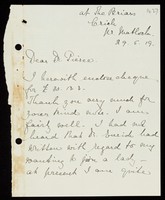 at The Briars
Crich
Nr. Matlock
29.5.19.
Dear Mr Pierce
I herewith enclose cheque
for £
Thank you very much for
your kind note. I am
fairly well. I had not
heard that Mr. had
written with regard to my
wanting to join a lady -
at present I am quite